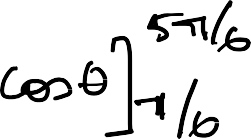 cos θ]_{π/6}^{5π/6}